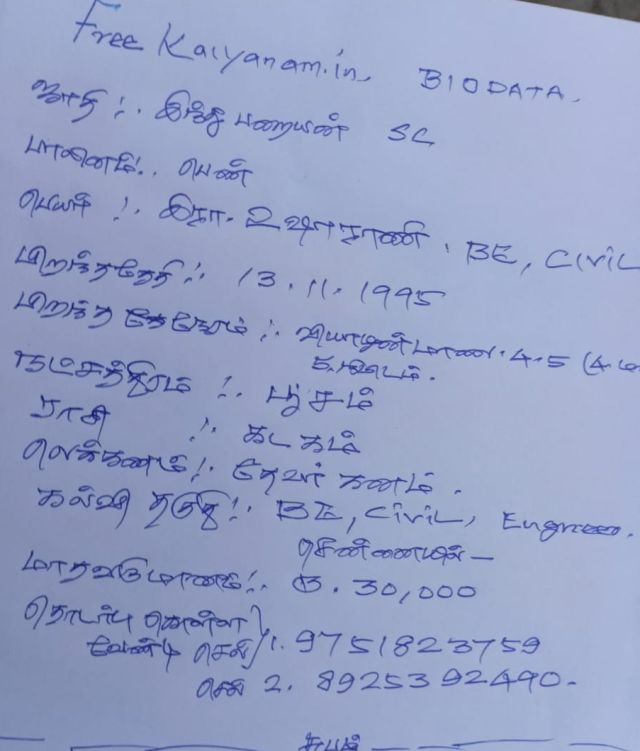 Free Kalyanam.in, BIODATA.
ஜாதி :. இந்து பறையன் SC
பாலினம் :. பெண்
பெயர் :. இரா. உஷாராணி. BE, CIVIL
பிறந்ததேதி :. 13.11.1995
பிறந்த நேரம் :. வியாழன் மாலை. 4.5 (4 ம
நிமிடம்.
நட்சத்திரம் :. பூசம்
ராசி :. கடகம்
லெக்கனம் :. தேவர் கனம்.
கல்வி தகுதி :. BE, Civil, Engineer.
சென்னையில் –
மாதவருமானம் :. ரூ. 30,000
தொடர்பு கொள்ள
வேண்டிய செல் 1. 9751823759
செல் 2. 8925392490.
சுபம்